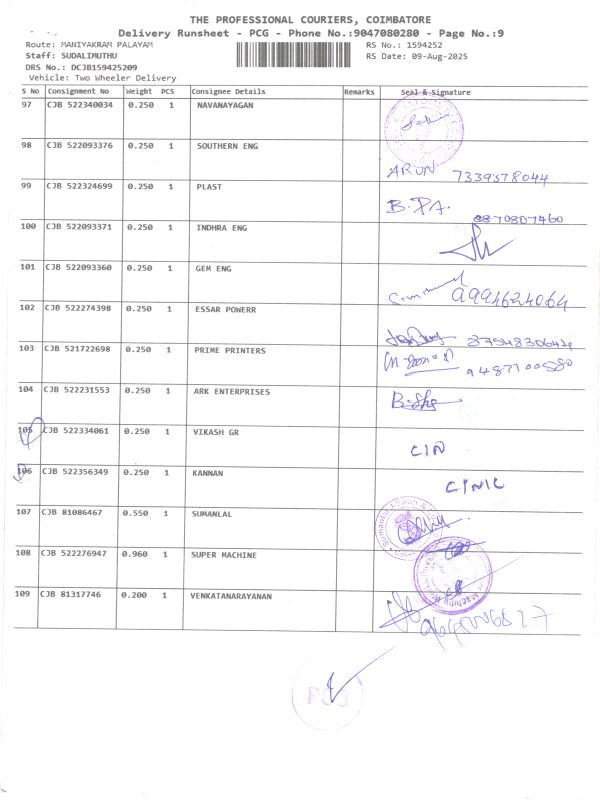 THE PROFESSIONAL COURIERS, COIMBATORE
Delivery Runsheet - PCG - Phone No.:9047080280 - Page No.:9
Route: MANIYAKRAM PALAYAM RS No.: 1594252
Staff: SUDALIMUTHU RS Date: 09-Aug-2025
DRS No.: DCJB159425209
Vehicle: Two Wheeler Delivery
S No Consignment No Weight PCS Consignee Details Remarks Seal & Signature
97 CJB 522340034 0.250 1 NAVANAYAGAN
98 CJB 522093376 0.250 1 SOUTHERN ENG ARUN 7339378044
99 CJB 522324699 0.250 1 PLAST B.PA.
100 CJB 522093371 0.250 1 INDHRA ENG
101 CJB 522093360 0.250 1 GEM ENG 9994624064
102 CJB 522274398 0.250 1 ESSAR POWERR
103 CJB 521722698 0.250 1 PRIME PRINTERS
104 CJB 522231553 0.250 1 ARK ENTERPRISES
105 CJB 522334061 0.250 1 VIKASH GR C/N
106 CJB 522356349 0.250 1 KANNAN
107 CJB 81086467 0.550 1 SUMANLAL
108 CJB 522276947 0.960 1 SUPER MACHINE
109 CJB 81317746 0.200 1 VENKATANARAYANAN
PCG